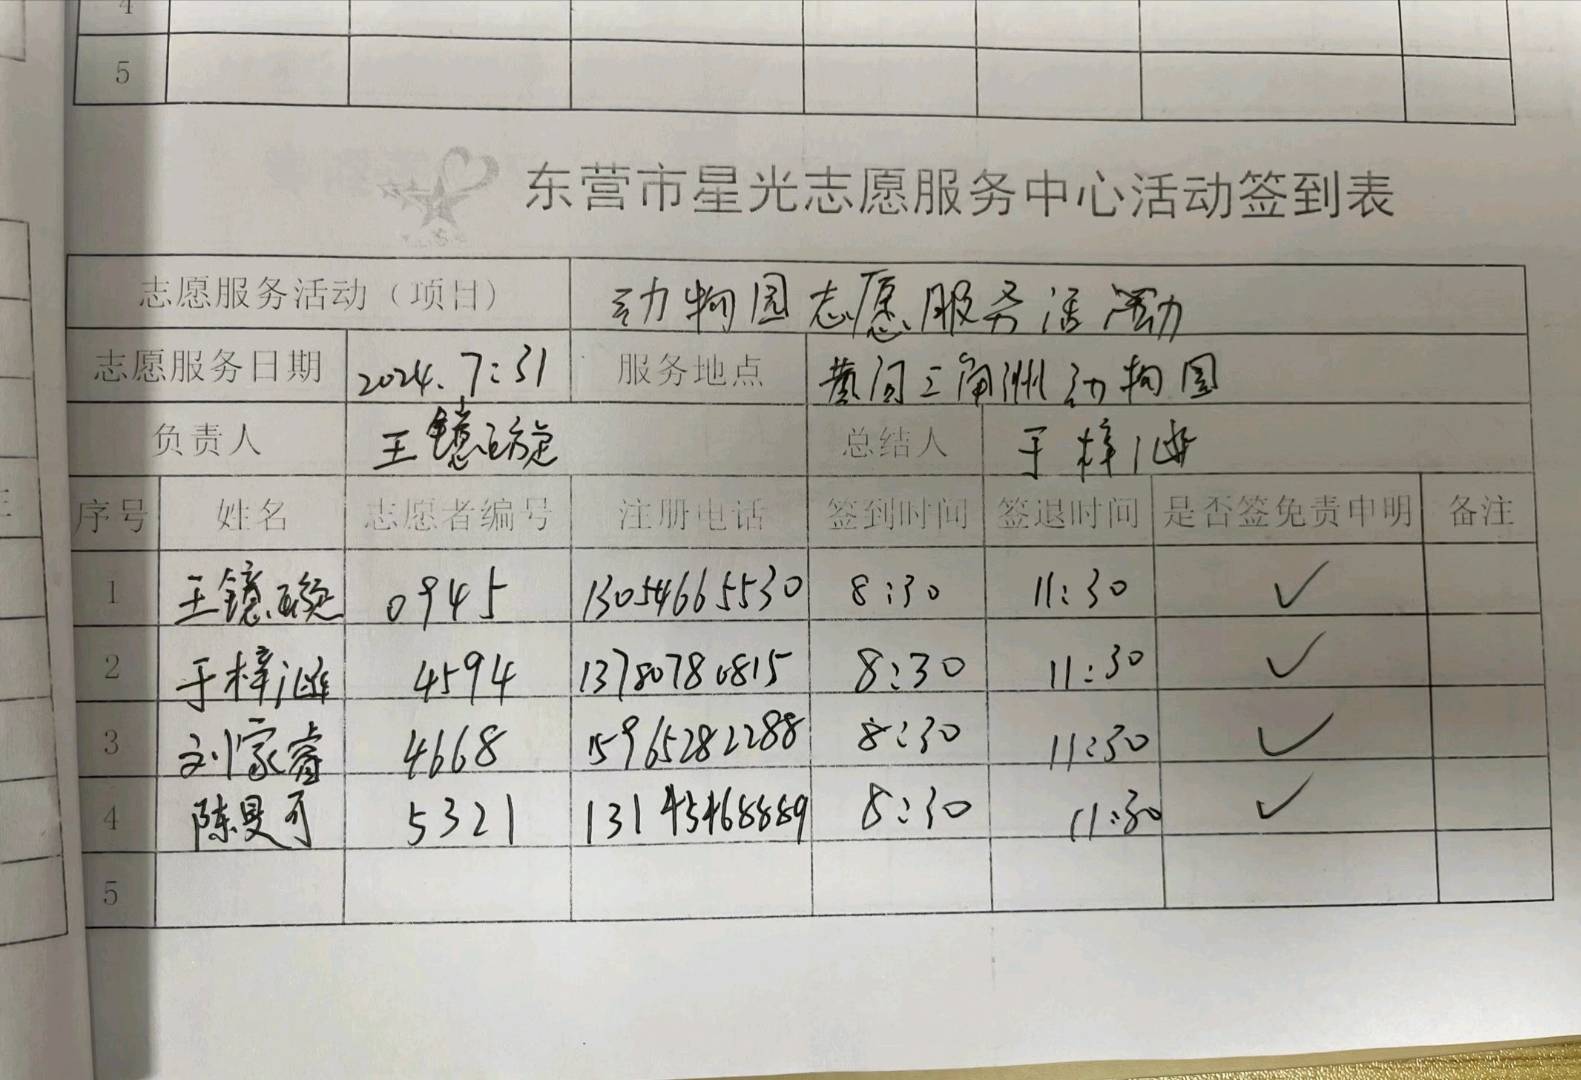 4
5
东营市星光志愿服务中心活动签到表
志愿服务活动（项目） 动物园志愿服务活动
志愿服务日期 2024.7:31 服务地点 黄河三角洲动物园
负责人 王镱璇 总结人 于梓涵
序号 姓名 志愿者编号 注册电话 签到时间 签退时间 是否签免责申明 备注
1 王镱璇 0945 13054665530 8:30 11:30 ✓
2 于梓涵 4594 13780780815 8:30 11:30 ✓
3 刘家睿 4668 15965282288 8:30 11:30 ✓
4 陈昱可 5321 13145468889 8:30 11:30 ✓
5